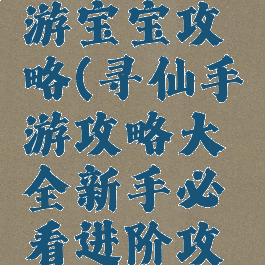 游宝宝攻
略(寻仙手
游攻略大
全新手必
看进阶攻